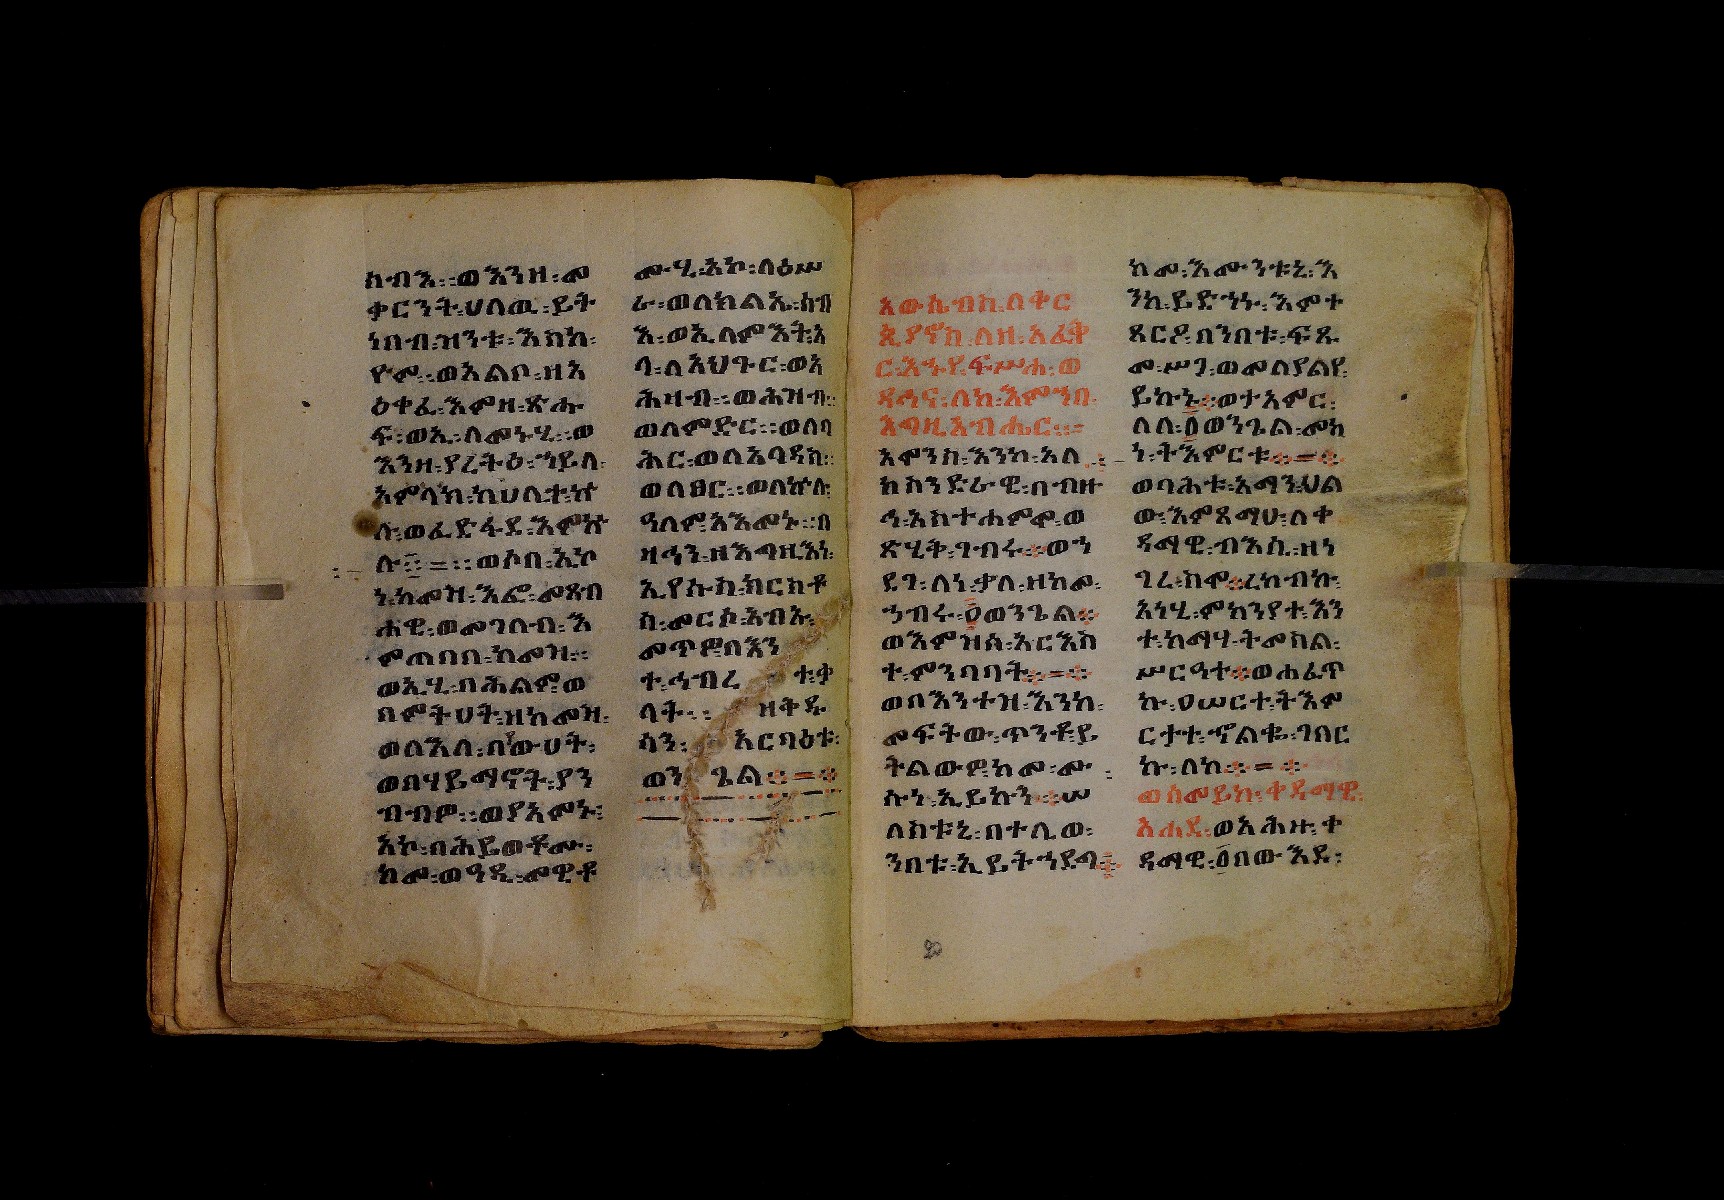 ሰብእ፡፡ወእንዘ፡መ
ቀርንት፡ሀለዉ፡ይት
ነበብ፡ዝንቱ፡እስከ፡
ዮም፡፡ወአልቦ፡ዘአ
ዕቀፈ፡እምዘ፡ጽሑ
ፍ፡፡ወኢ፡ለመኑሂ፡፡ወ
እንዘ፡ያረትዕ፡ኀይለ፡
አምላክ፡ከሀለተ፡ኵ
ሉ፡ወፈድፋደ፡እምኵ
ሉ፡፡=፡፡ወሶበ፡አኮ
ነ፡ከመዝ፡እፎ፡መጽብ
ሐዊ፡ወመገለብ፡እ
ምጠበበ፡ከመዝ፡፡
ወኢሂ፡በሕልም፡ወ
በሞትሀት፡ዘከመዝ፡
ወለእለ፡በውሀት፡
ወበሃይማኖት፡ያን
ብብዎ፡፡ወያአምኑ፡
አኮ፡በሕይወቶሙ፡
ከመ፡ወዓዲ፡መዊቶ
ሙሂ፡አኮ፡ለዕሥ
ራ፡ወለክልኤ፡ሰብ
እ፡ወኢለምእት፡አ
ላ፡ለአህጉር፡ወአ
ሕዛብ፡፡ወሕዝብ፡፡
ወለምድር፡፡ወለባ
ሕር፡ወለአባዳከ፡፡
ወለፀር፡፡ወለኵሉ፡
ዓለም፡አእመኑ፡፡በ
ዛኅን፡ዘእግዚእነ፡
ኢየሱስ፡ክርስቶ
ስ፡መርሶ፡አብእ፡
መጥዎ፡በእን
ተ፡ኅብረ ተ፡ቃ
ላት፡፡ ዘቅዱ
ሳን፡ አርባዕቱ፡
ወን ጌል፡=፡
አውሴብስ፡ለቀር
ጲያኖስ፡ለዘ፡አፈቅ
ር፡እኁየ፡ፍሥሐ፡ወ
ዳኅና፡ለከ፡እምኀበ
እግዚአብሔር፡፡=
አሞንስ፡እንከ፡አለ
ክስንድራዊ፡በብዙ
ኅ፡አስተሐምሞ፡ወ
ጽሂቅ፡ገብሩ፡ወኀ
ደገ፡ለነ፡ቃለ፡ዘከመ፡
ኀብሩ፡፬ወንጌል፡
ወእምዝሰ፡አርእስ
ተ፡ምንባባት፡=፡
ወበእንተዝ፡እንከ፡
መፍትው፡ጥንቶ፡ይ
ትልውዎ፡ከመ፡ሙ
ሱነ፡ኢይኩን፡፡ሠ
ለስቱኒ፡በተሊወ፡
ንበቱ፡ኢይትኀደግ፡
ከመ፡እሙንቱኒ፡እ
ንከ፡ይድኀኑ፡እምተ
ጻርዶ፡በንበቱ፡ፍጹ
መ፡ሥጋ፡ወመለያልየ፡
ይኩኑ፡፡ወታአምር፡
ለለ፡፬ወንጌል፡መከ
ነ፡ትእምርቱ፡=፡
ወባሕቱ፡አማን፡ህል
ው፡እምጻማሀ፡ለቀ
ዳማዊ፡ብእሲ፡ዘነ
ገረ፡ከሞ፡ረከብኩ፡
አነሂ፡ምክንያተ፡እን
ተ፡ከማሃ፡ትመስል፡
ሥርዓተ፡ወሐፈጥ
ኩ፡፲ሠርተ፡ትእም
ርታተ፡ኆልቈ፡ገበር
ኩ፡ለከ፡=፡
ወስመይክ፡ቀዳማዊ፡
አሐደ፡ወአሕዙ፡ቀ
ዳማዊ፡፬በውእደ፡
፳